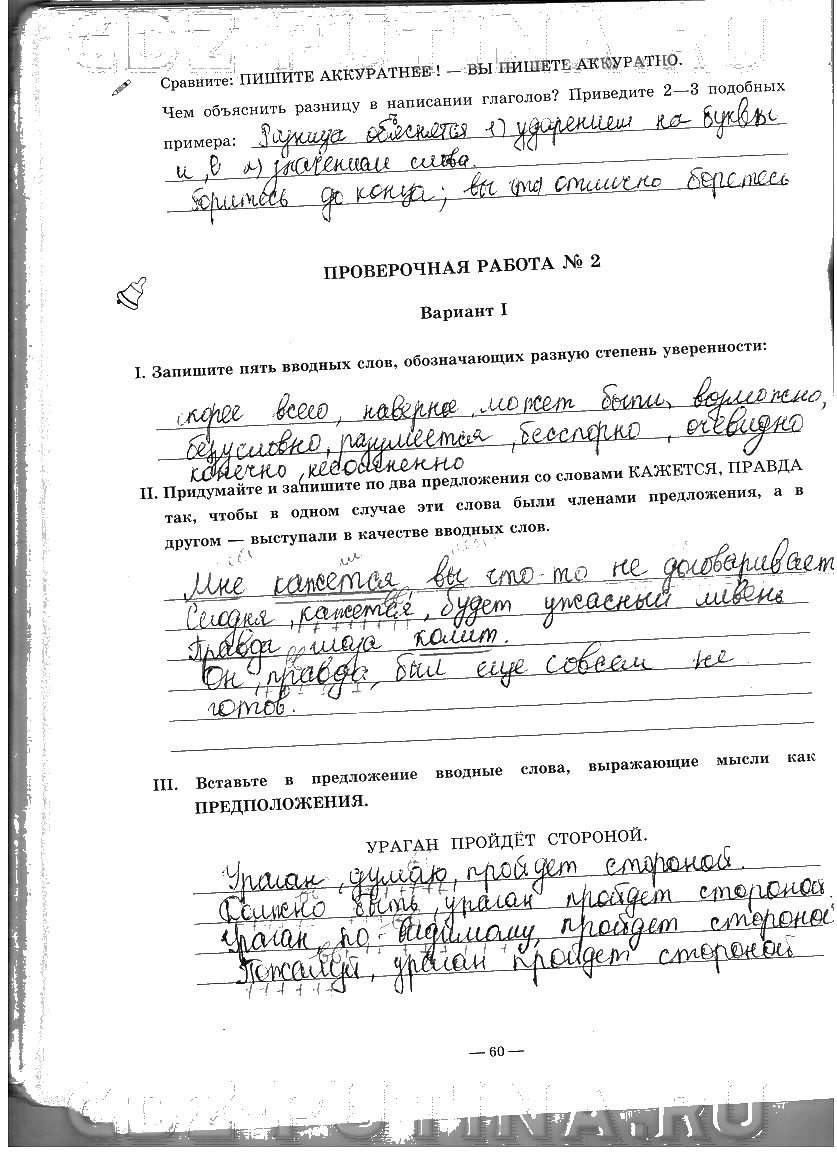 GDZ-PUTINA.RU
Сравните: ПИШИТЕ АККУРАТНЕЕ! — ВЫ ПИШЕТЕ АККУРАТНО.
Чем объяснить разницу в написании глаголов? Приведите 2—3 подобных
примера: Разница объясняется 1) ударением на буквы
и, е 2) значением слова.
боритесь до конца; вы отлично боретесь
ПРОВЕРОЧНАЯ РАБОТА № 2
Вариант I
I. Запишите пять вводных слов, обозначающих разную степень уверенности:
скорее всего, наверное, может быть, возможно,
безусловно, разумеется, бесспорно, очевидно
конечно, несомненно
II. Придумайте и запишите по два предложения со словами КАЖЕТСЯ, ПРАВДА
так, чтобы в одном случае эти слова были членами предложения, а в
другом — выступали в качестве вводных слов.
Мне кажется, вы что-то не договариваете
Сегодня, кажется, будет ужасный ливень
Правда глаза колит.
Он, правда, был еще совсем не
готов.
III. Вставьте в предложение вводные слова, выражающие мысли как
ПРЕДПОЛОЖЕНИЯ.
УРАГАН ПРОЙДЁТ СТОРОНОЙ.
Ураган, думаю, пройдет стороной.
Должно быть, ураган пройдет стороной.
Ураган, по-видимому, пройдет стороной
Пожалуй, ураган пройдет стороной
— 60 —
GDZ-PUTINA.RU